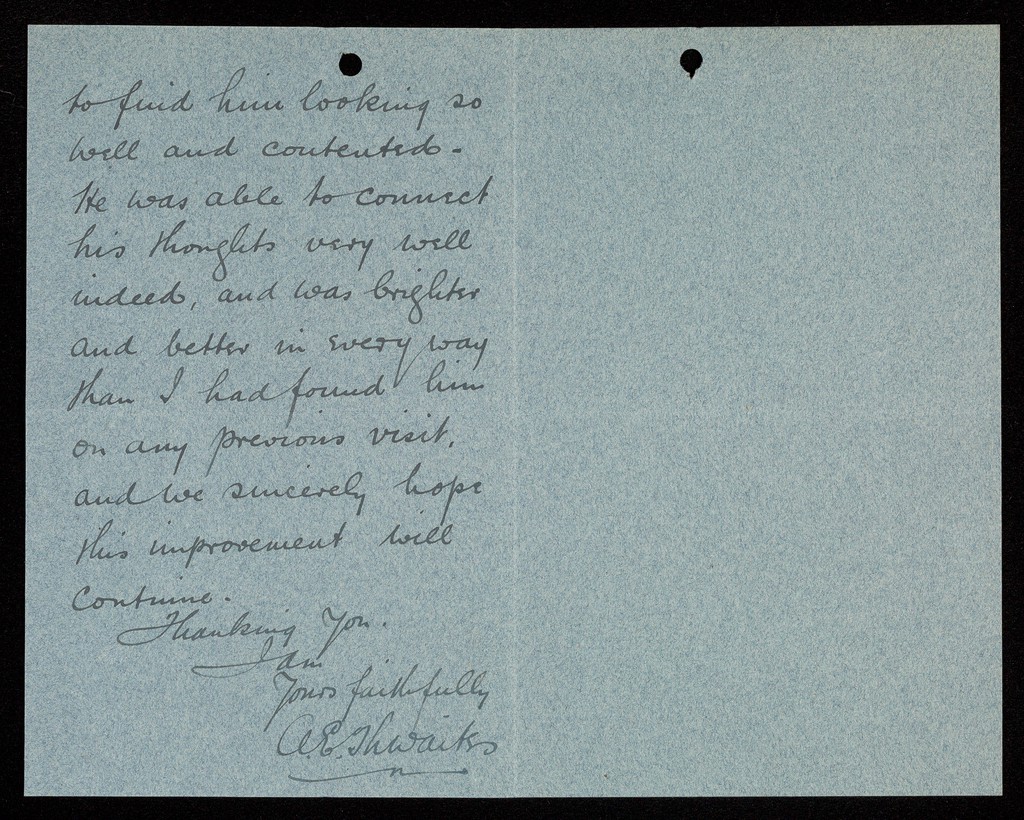 to find him looking so
well and contented -
He was able to connect
his thoughts very well
indeed, and was brighter
and better in every way
than I had found him
on any previous visit,
and we sincerely hope
this improvement will
continue.
Thanking You.
I am
Yours faithfully
A. E. Thwaites